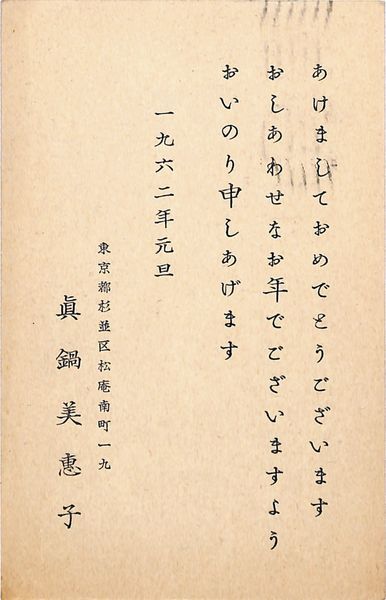 あけましておめでとうございます
おしあわせなお年でございますよう
おいのり申しあげます
一九六二年元旦
東京都杉並区松庵南町一九
眞鍋美惠子